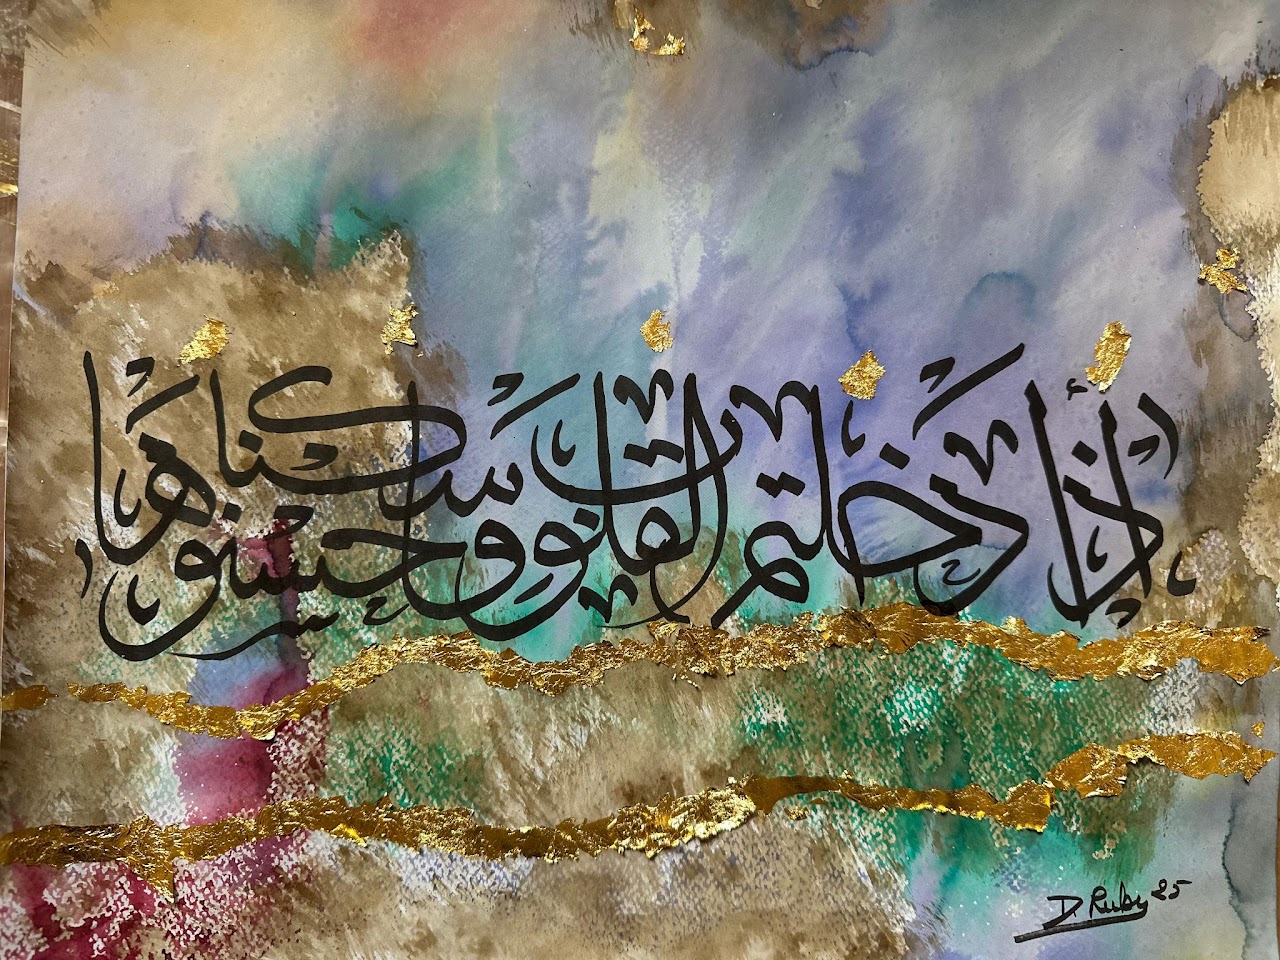 إذا دخلتم القلوب واحسنوا سكناها
D. Ruby 25